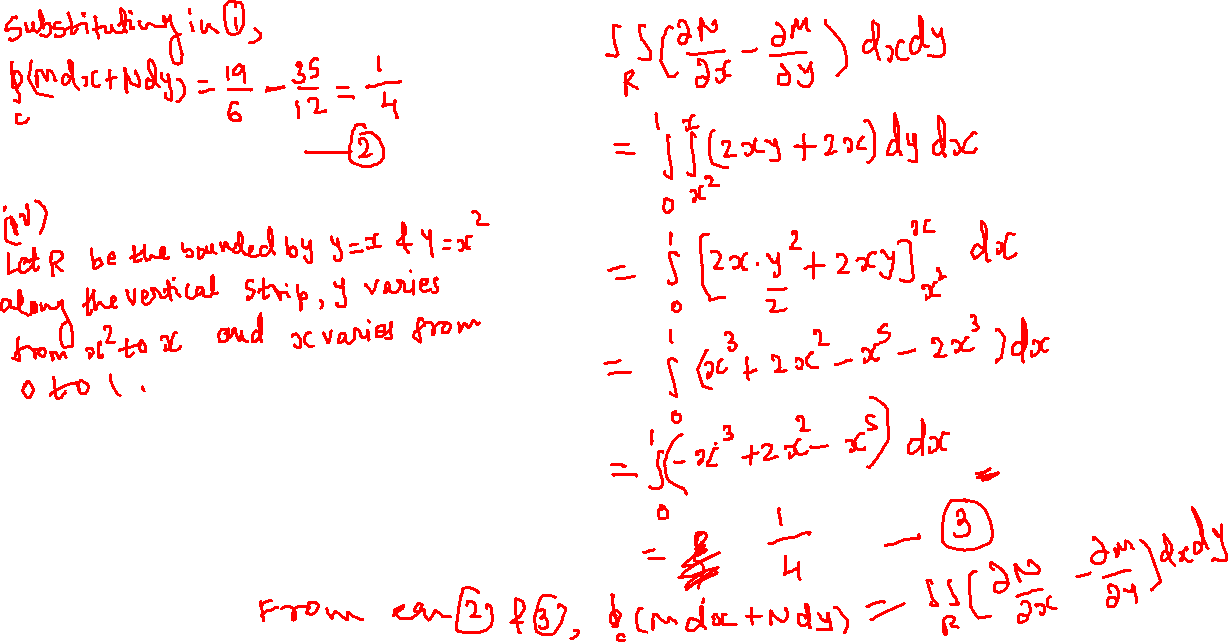 Substituting in ①,
∮_c (Mdx + Ndy) = 19/6 − 35/12 = 1/4
—②
(iv)
Let R be the bounded by y=x & y=x²
along the vertical strip, y varies
from x² to x and x varies from
0 to 1.
∫∫_R (∂N/∂x − ∂M/∂y) dxdy
= ∫_0^1 ∫_{x²}^x (2xy + 2x) dy dx
= ∫_0^1 [2x·y²/2 + 2xy]_{x²}^x dx
= ∫_0^1 (x³ + 2x² − x⁵ − 2x³) dx
= ∫_0^1 (−x³ + 2x² − x⁵) dx
= 1/4 — ③
From ean ② & ③, ∮_c (Mdx + Ndy) = ∫∫_R (∂N/∂x − ∂M/∂y) dxdy